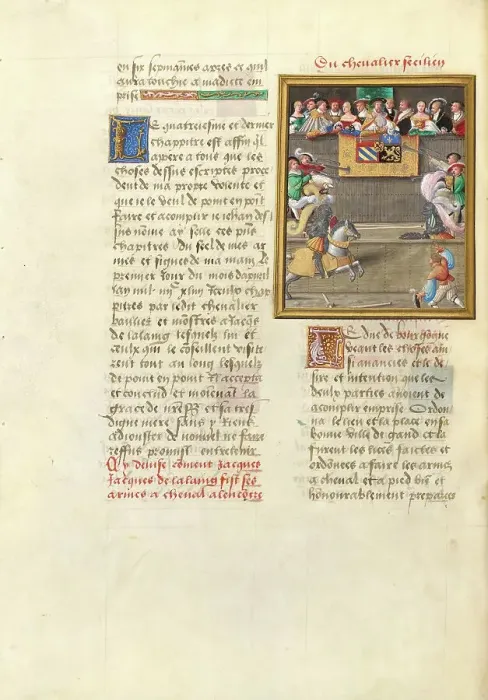 en six sepmaines apres ce quil
aura touchie a madicte em
prise
Le quatriesme et derrier
chappitre est affin quil
apere a tous que les
choses dessus escriptes proce
dent de ma propre voulente et
que ie le veul de point en point
faire et acomplir ie iehan
nomme ay selle ces pns
chapitres du seel de mes ar
mes et signes de ma main le
premier iour du mois dapuril
lan mil iiijc xliiij Iceulx chap
pitres par ledit cheualier
bailliez et monstres a iaques
de lalaing lesquelz lui et
ceulx qui le conseillent visite
rent tout au long lesquelz
de point en point Il accepta
et conclud et moienant la
grace de et sa tres
digne mere sans y riens
adiouster de nouuel ne faire
reffus promist entretenir
Cy deuise coment Jacques
Jacques de lalaing fist ses
armes a cheual alencontre
Du cheualier secilien
Le duc de bourgoigne
veant les choses ain
si auancies et le de
sire et intention que les
deulx parties auoient de
acomplir emprise Ordon
na le lieu et la place en sa
bonne ville de gand et la
furent les lices faictes et
ordonees a faire les armes
a cheual et a pied bien et
honnourablement preparees